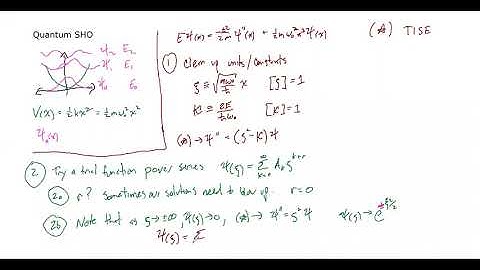 Quantum SHO
ψ₂ E₂
ψ₁ E₁
ψ₀ E₀
V(x) = ½kx² = ½mω₀²x²
ψₙ(x)
Eψ(x) = -ħ²/2m ψ''(x) + ½mω₀²x²ψ(x) (☆) TISE
① Clean up units/constants
ξ ≡ √(mω₀/ħ) x [ξ] = 1
K ≡ 2E/ħω₀ [K] = 1
(☆) → ψ'' = (ξ² - K)ψ
② Try a trial function power series ψ(ξ) = Σ Aₖ ξᵏ⁺ʳ
②a r? sometimes our solutions need to blow up. r = 0
②b Note that as ξ → ±∞, ψ(ξ) → 0, (☆) → ψ'' = ξ²ψ ψ(ξ) → e^(±ξ²/2)
ψ(ξ) = Σ